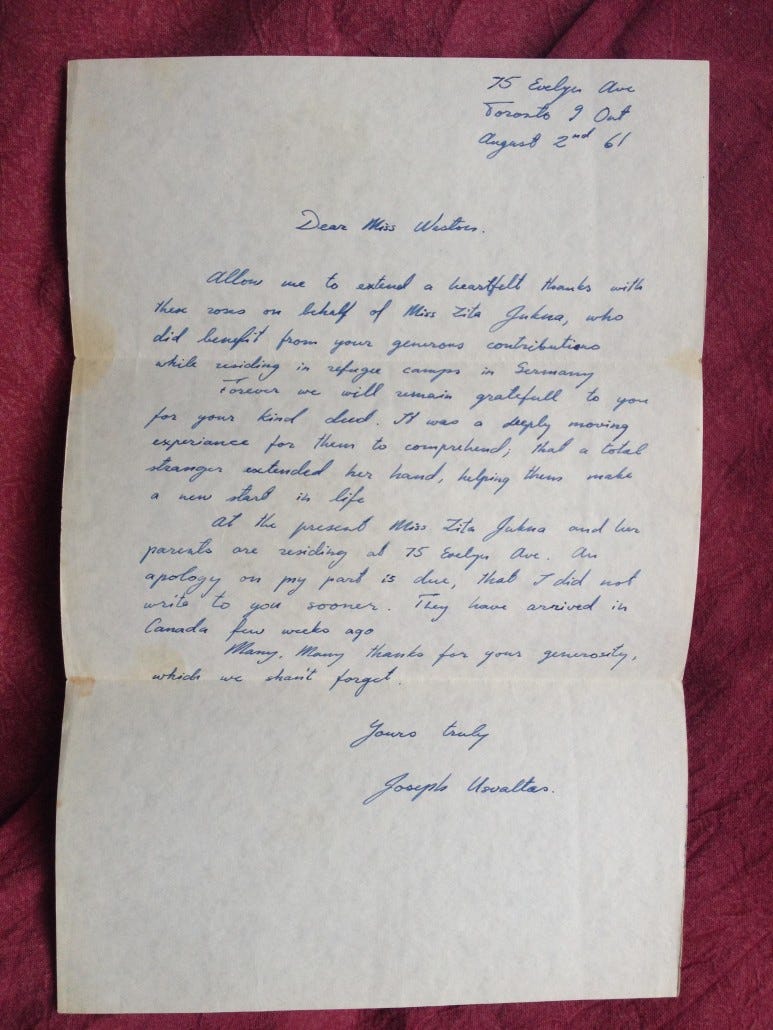 75 Evelyn Ave
Toronto 9 Ont
August 2nd 61
Dear Miss
Allow me to extend a heartfelt thanks with
these roses on behalf of Miss Zita Jukna, who
did benefit from your generous contributions
while residing in refugee camps in Germany
Forever we will remain gratefull to you
for your kind deed. It was a deeply moving
experiance for them to comprehend; that a total
stranger extended her hand, helping them make
a new start in life
At the present Miss. Zita Jukna and her
parents are residing at 75 Evelyn Ave. An
apology on my part is due, that I did not
write to you sooner. They have arrived in
Canada few weeks ago
Many, Many thanks for your generosity,
which we shan't forget.
Yours truly
Joseph Usvaltas.